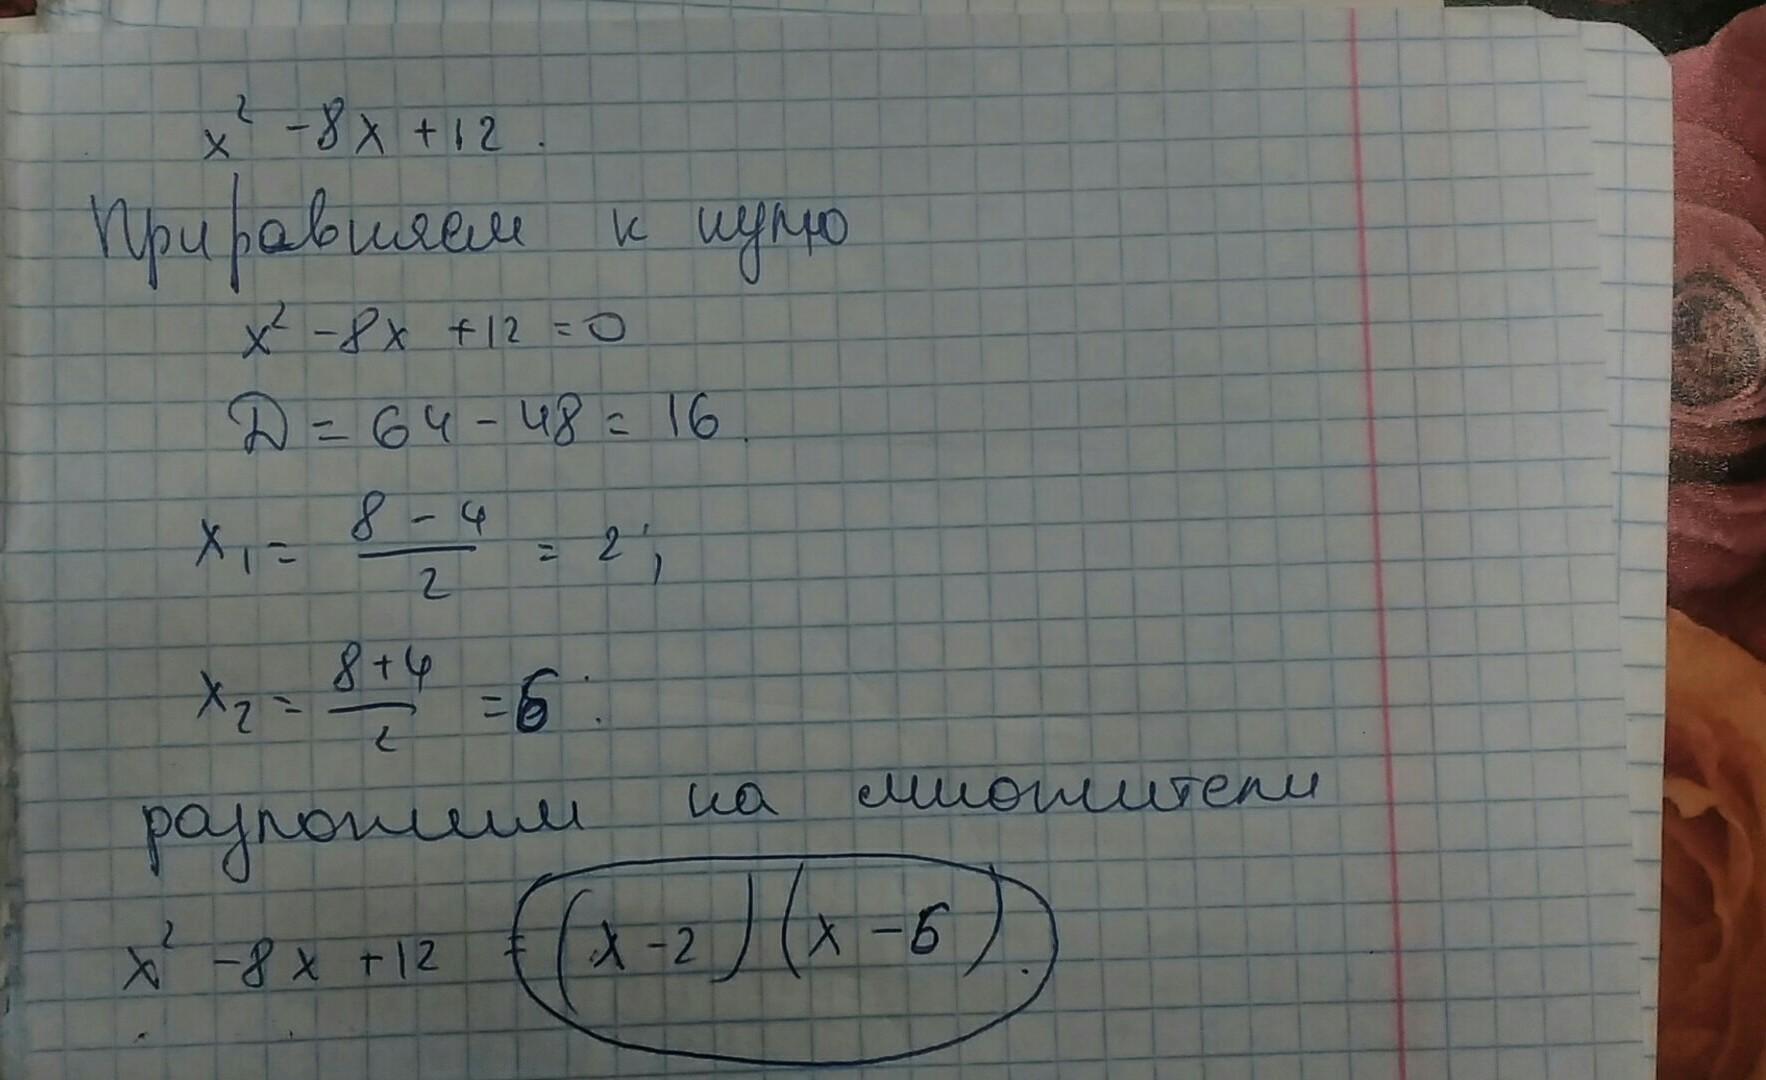 x² -8x +12.
Приравняем к нулю
x² -8x +12 =0
D = 64 - 48 = 16.
x₁ = (8 - 4)/2 = 2;
x₂ = (8+4)/2 = 6.
разложим на множители
x² -8x +12 = (x -2)(x -6).